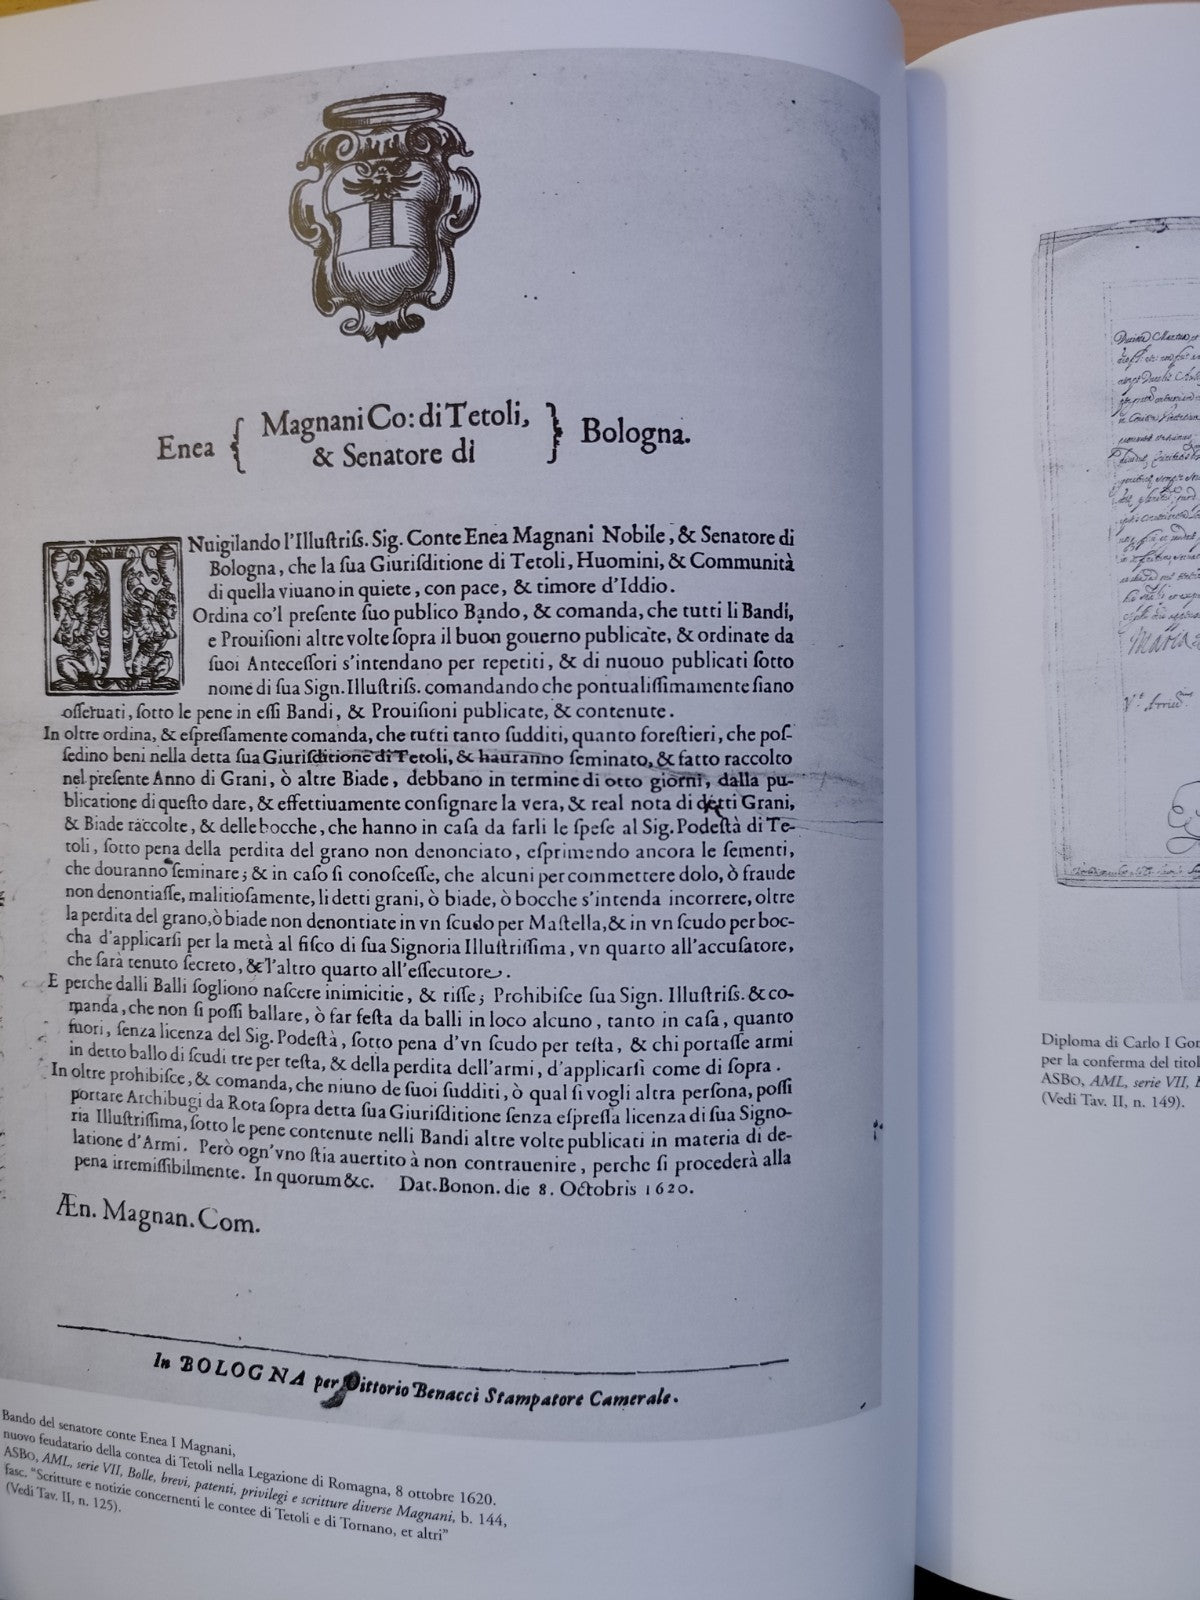 Enea { Magnani Co: di Tetoli, } Bologna.
& Senatore di
INuigilando l'Illuſtriſs. Sig. Conte Enea Magnani Nobile, & Senatore di
Bologna, che la ſua Giuriſditione di Tetoli, Huomini, & Communità
di quella viuano in quiete, con pace, & timore d'Iddio.
Ordina co'l preſente ſuo publico Bando, & comanda, che tutti li Bandi,
e Prouiſioni altre volte ſopra il buon gouerno publicate, & ordinate da
ſuoi Anteceſſori s'intendano per repetiti, & di nuouo publicati ſotto
nome di ſua Sign. Illuſtriſs. comandando che pontualiſſimamente ſiano
oſſeruati, ſotto le pene in eſſi Bandi, & Prouiſioni publicate, & contenute.
In oltre ordina, & eſpreſſamente comanda, che tutti tanto ſudditi, quanto foreſtieri, che poſ-
ſedino beni nella detta ſua Giuriſditione di Tetoli, & hauranno ſeminato, & fatto raccolto
nel preſente Anno di Grani, ò altre Biade, debbano in termine di otto giorni, dalla pu-
blicatione di queſto dare, & effettiuamente conſignare la vera, & real nota di detti Grani,
& Biade raccolte, & delle bocche, che hanno in caſa da farli le ſpeſe al Sig. Podeſtà di Te-
toli, ſotto pena della perdita del grano non denonciato, eſprimendo ancora le ſementi,
che douranno ſeminare; & in caſo ſi conoſceſſe, che alcuni per commettere dolo, ò fraude
non denontiaſſe, malitioſamente, li detti grani, ò biade, ò bocche s'intenda incorrere, oltre
la perdita del grano, ò biade non denontiate in vn ſcudo per Maſtella, & in vn ſcudo per boc-
cha d'applicarſi per la metà al fiſco di ſua Signoria Illuſtriſſima, vn quarto all'accuſatore,
che ſarà tenuto ſecreto, & l'altro quarto all'eſſecutore.
E perche dalli Balli ſogliono naſcere inimicitie, & riſſe; Prohibiſce ſua Sign. Illuſtriſs. & co-
manda, che non ſi poſſi ballare, ò far feſta da balli in loco alcuno, tanto in caſa, quanto
fuori, ſenza licenza del Sig. Podeſtà, ſotto pena d'vn ſcudo per teſta, & chi portaſſe armi
in detto ballo di ſcudi tre per teſta, & della perdita dell'armi, d'applicarſi come di ſopra.
In oltre prohibiſce, & comanda, che niuno de ſuoi ſudditi, ò qual ſi vogli altra perſona, poſſi
portare Archibugi da Rota ſopra detta ſua Giuriſditione ſenza eſpreſſa licenza di ſua Signo-
ria Illuſtriſſima, ſotto le pene contenute nelli Bandi altre volte publicati in materia di de-
latione d'Armi. Però ogn'vno ſtia auertito à non contrauenire, perche ſi procederà alla
pena irremiſſibilmente. In quorum &c. Dat. Bonon. die 8. Octobris 1620.
Æn. Magnan. Com.
In BOLOGNA per Vittorio Benacci Stampatore Camerale.
Bando del senatore conte Enea I Magnani,
nuovo feudatario della contea di Tetoli nella Legazione di Romagna, 8 ottobre 1620.
ASBO, AML, serie VII, Bolle, brevi, patenti, privilegi e scritture diverse Magnani, b. 144,
fasc. "Scritture e notizie concernenti le contee di Tetoli e di Tornano, et altri"
(Vedi Tav. II, n. 125).
Diploma di Carlo I Gon
per la conferma del titol
ASBO, AML, serie VII,
(Vedi Tav. II, n. 149).